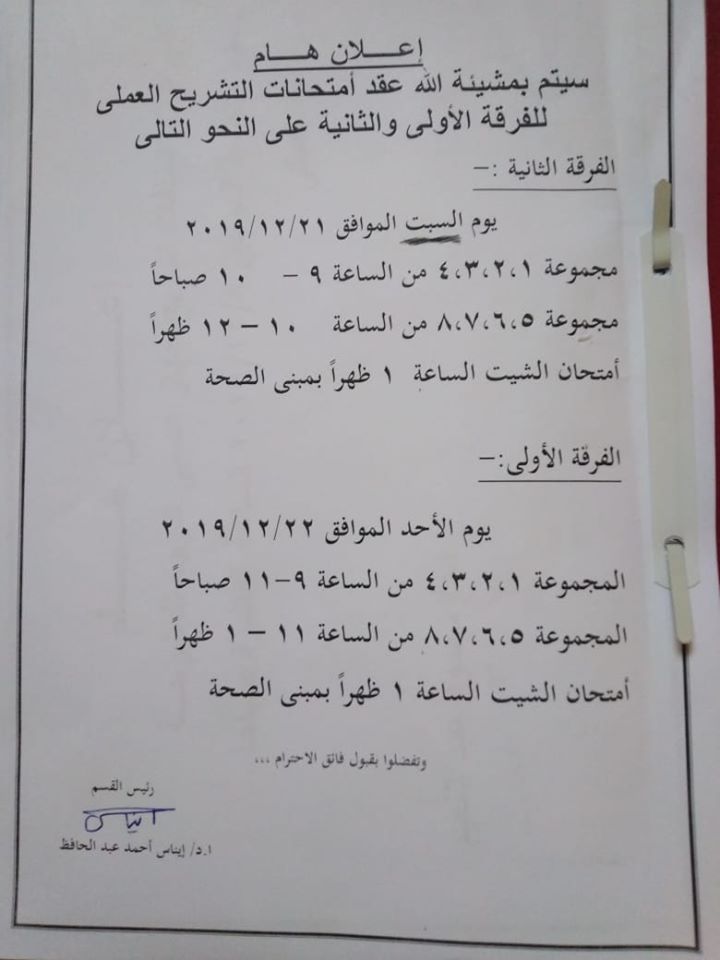 إعـــلان هـــام
سيتم بمشيئة الله عقد أمتحانات التشريح العملى
للفرقة الأولى والثانية على النحو التالى
الفرقة الثانية :-
يوم السبت الموافق ٢٠١٩/١٢/٢١
مجموعة ٤،٣،٢،١ من الساعة ٩ - ١٠ صباحاً
مجموعة ٨،٧،٦،٥ من الساعة ١٠ - ١٢ ظهراً
أمتحان الشيت الساعة ١ ظهراً بمبنى الصحة
الفرقة الأولى:-
يوم الأحد الموافق ٢٠١٩/١٢/٢٢
المجموعة ٤،٣،٢،١ من الساعة ٩-١١ صباحاً
المجموعة ٨،٧،٦،٥ من الساعة ١١ - ١ ظهراً
أمتحان الشيت الساعة ١ ظهراً بمبنى الصحة
وتفضلوا بقبول فائق الاحترام ،،،
رئيس القسم
ايناس
ا.د/ إيناس أحمد عبد الحافظ